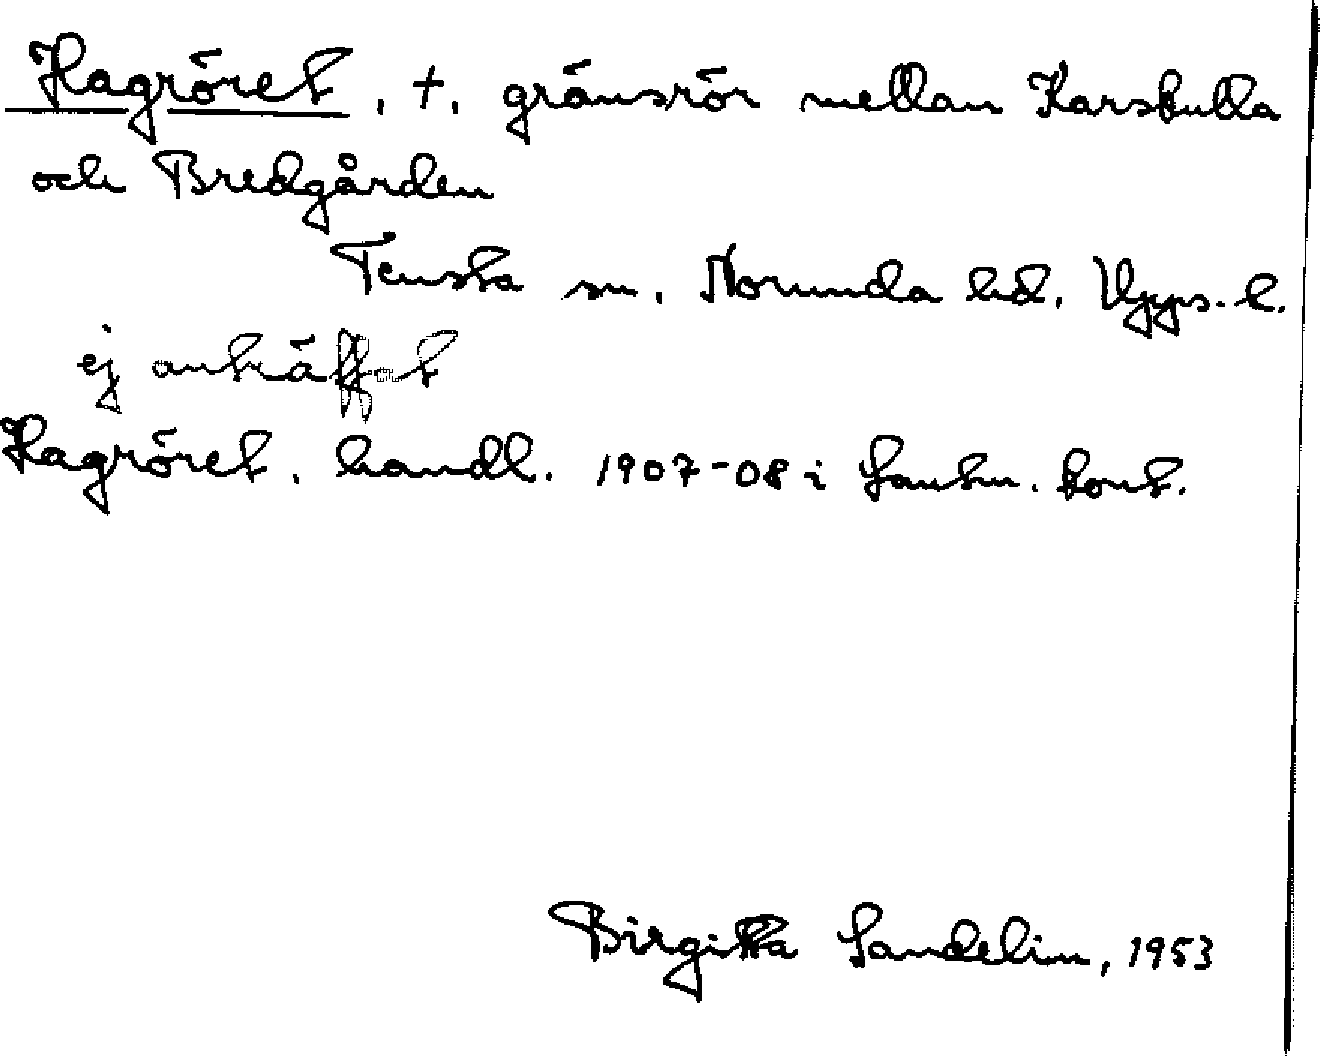 Hagröret, †, gränsrör mellan Karskulla
och Bredgården
Tensta sn. Norunda hd. Upps. l.
ej anträffat
Hagröret. handl. 1907-08 i Lantm. kont.
Birgitta Sandelin, 1953